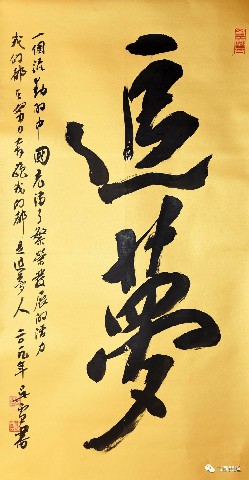 追夢
一個流動的中國充滿了繁榮發展的活力
我们都在努力奔跑我们都是追夢人 二〇一九年 書